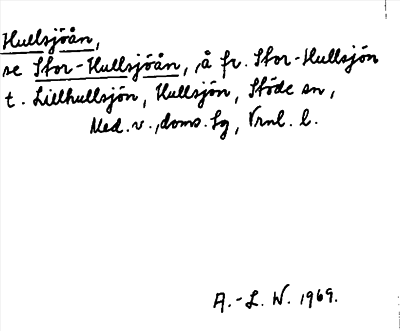 Hullsjöån,
se Stor-Hullsjöån, å fr. Stor-Hullsjön
t. Lillhullsjön, Hullsjön, Stöde sn,
Med. v., doms. Lg, Vrnl. l.
A.-L. W. 1969.